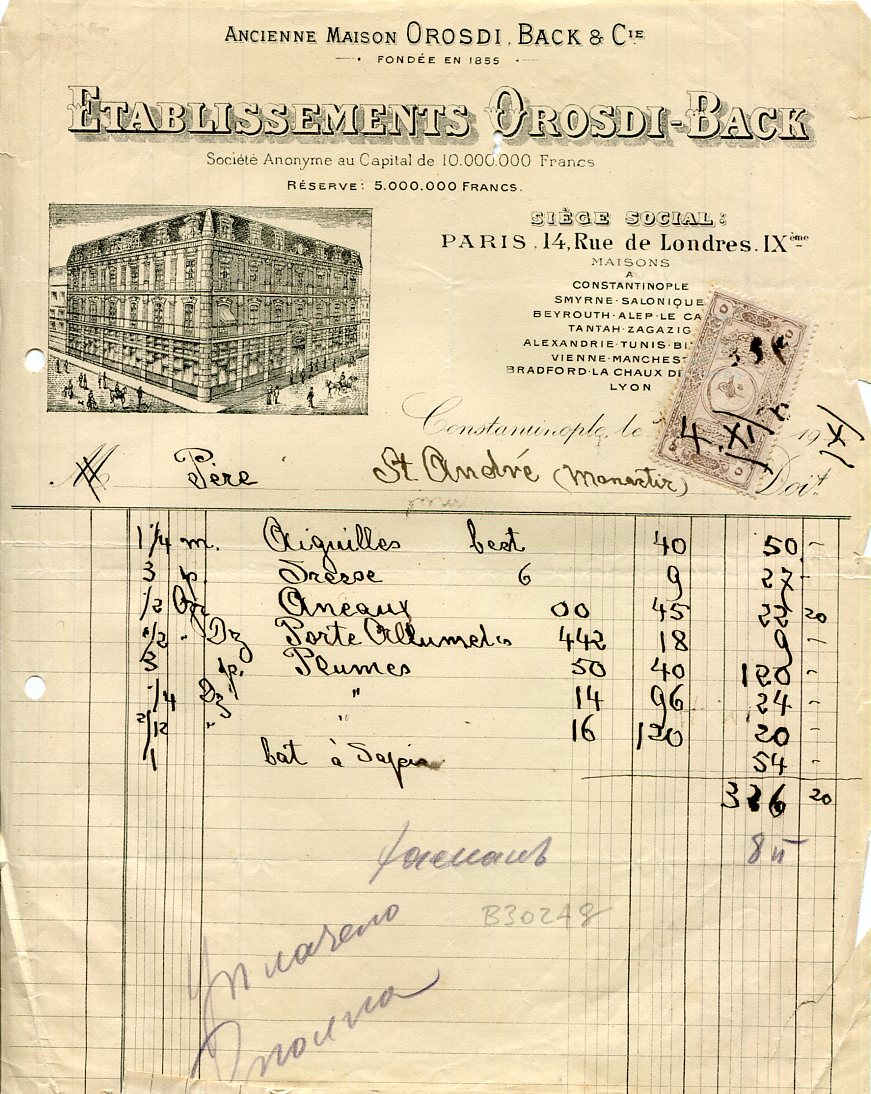 ANCIENNE MAISON OROSDI, BACK & CIE
FONDÉE EN 1855
ETABLISSEMENTS OROSDI-BACK
Société Anonyme au Capital de 10.000.000 Francs
RÉSERVE: 5.000.000 FRANCS.
SIÈGE SOCIAL:
PARIS, 14, Rue de Londres. IXème
MAISONS
A
CONSTANTINOPLE
SMYRNE·SALONIQUE
BEYROUTH·ALEP·LE CA
TANTAH·ZAGAZIG
ALEXANDRIE·TUNIS·BI
VIENNE·MANCHES
BRADFORD·LA CHAUX DE
LYON
Constantinople, le 4. XI 19
M Père St. André (Monastir) Doit
1 1/4 m. Aiguilles best 40 50 -
3 p. 6 9 27 -
1/2 Aneaux 00 45 22 20
1/2 " Dz Porte Allumets 442 18 9
3 p. Plumes 50 40 120 -
1/4 Dz " 14 96 24 -
2/12 " " 16 120 20 -
1 bat à 54 -
336 20
B30248
Уплачено